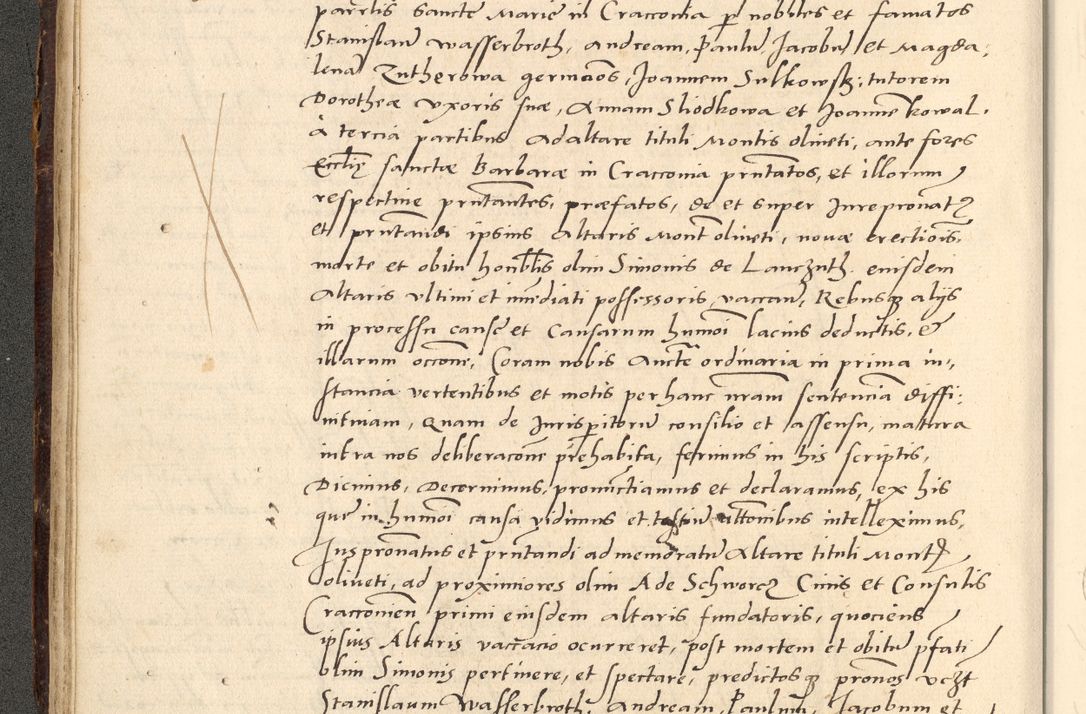 parrtis Sancte Marie in Cracovia per nobbles et famatos
Stanislaum Wasserbroth, Andream, Paulum, Jacobum et Magda,
lenam Zutherowa germanos, Joannem Sulkowsky, tutorem
Dorotheæ uxoris suæ, Annam Sliodkowa et Joannem kowal.
à tercia partibus ad altare tituli Montis oliueti, ante fores
Ecclię sanctæ Barbaræ in Cracouia prntatos, et illorum
respectiue prntantes, præfatos, de et super Jurepronatus
et prntandi ipsius Altaris Mont oliueti, nouæ erectiois,
morte et obitu honblis olim Simonis de Lanczuth eiusdem
Altaris ultimi et imediati possessoris, vaccan, Rebusque alijs
in processu cause et Causarum humoi lacius deductis, et
illarum occone, Coram nobis Aucte ordinaria in prima in,
stancia vertentibus et motis per hanc nram sentenciam diffi,
nitiuam, Quam de Jurisperitorum consilio et assensu, matura
intra nos deliberacone prehabita, ferimus in his scriptis,
Dicimus, Decernimus, pronunctiamus et declaramus, ex his
que in humoi causa vidimus et testium attonibus intelleximus,
Jus pronatus et prntandi ad memoratum Altare tituli Montis
oliueti, ad proximiores olim A de Schworcz Ciuis et Consulis
Cracouien primi eiusdem altaris fundatoris, quociens
ipsius Altaris vaccacio ocurreret, post mortem et obitum pfati
olim Simonis pertinere, et spectare, predictosque pronos uczt
Stanislaum Wasserbroth, Andream, Paulum, Jacobum et